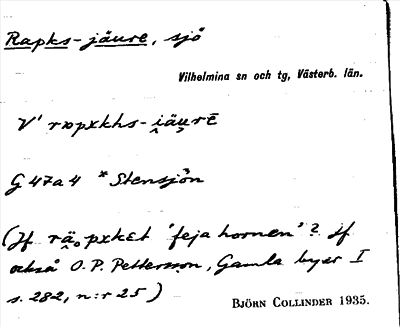 Rapks-jäure, sjö
Vilhelmina sn och tg, Västerb. län.
V' rɒpxkhs-i̯äu̯rē
G 47a4 * Stensjön
(Jf rä̭ₒpxkɛt 'feja hornen'? Jf
också O. P. Pettersson, Gamla byar I
s. 282, n:r 25)
BJÖRN COLLINDER 1935.